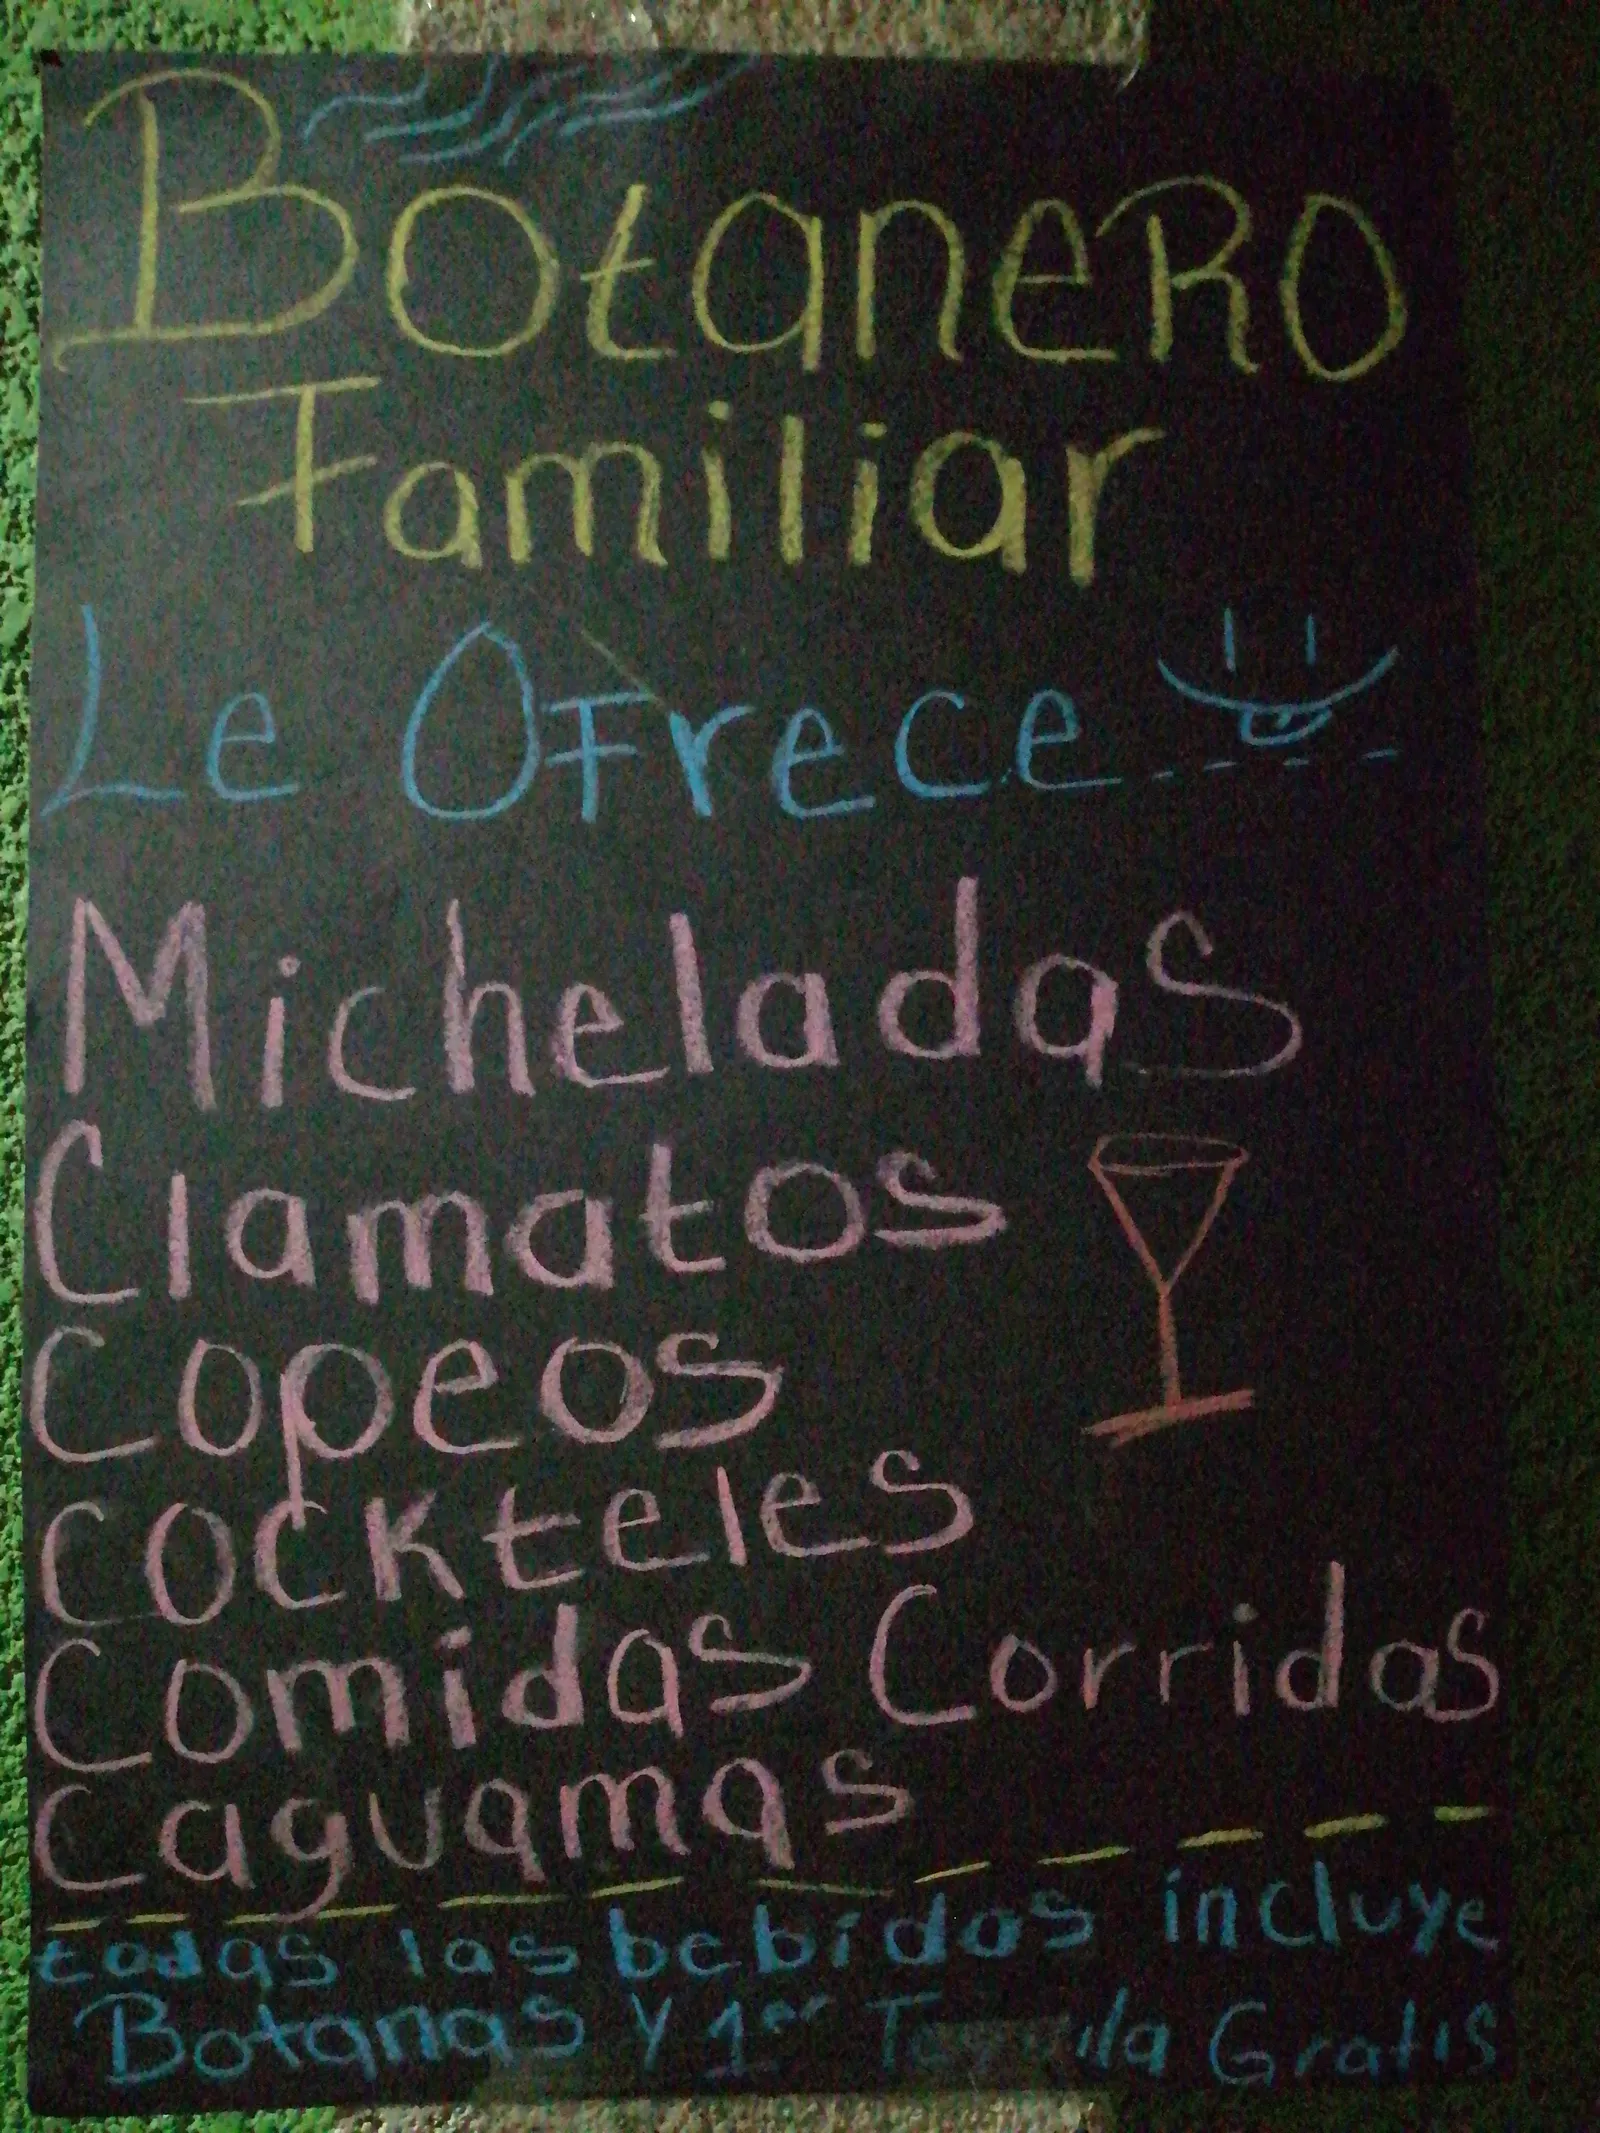 BotaneRO
Familiar
Le OFrece
Micheladas
Clamatos
Copeos
Cockteles
Comidas Corridas
Caguamas
todas las bebidas incluye
Botanas Y 1er Tequila Gratis